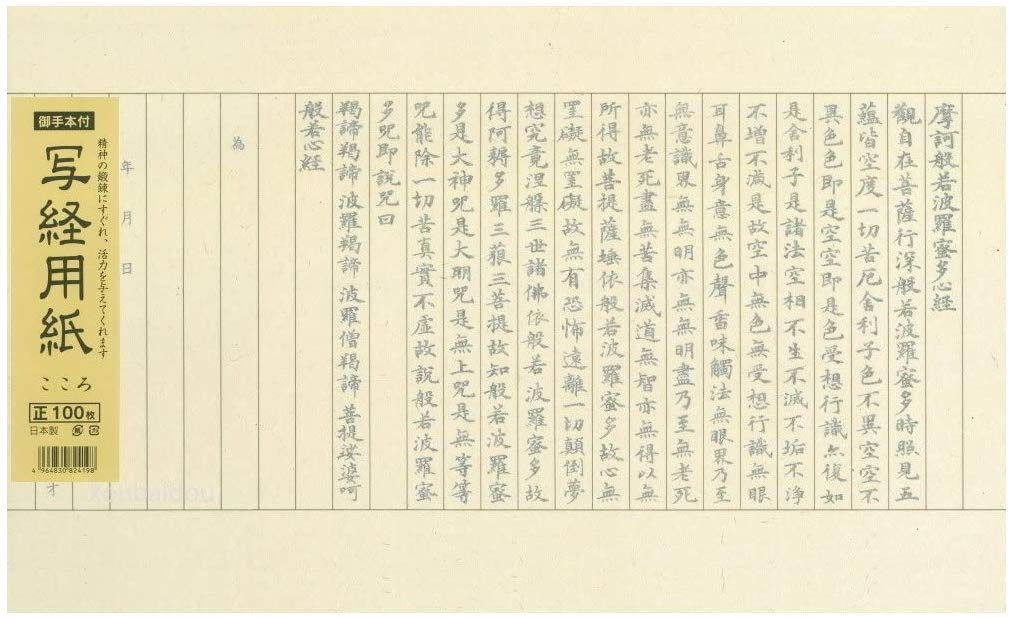 摩訶般若波羅蜜多心經
觀自在菩薩行深般若波羅蜜多時照見五
蘊皆空度一切苦厄舍利子色不異空空不
異色色即是空空即是色受想行識亦復如
是舍利子是諸法空相不生不滅不垢不淨
不增不減是故空中無色無受想行識無眼
耳鼻舌身意無色聲香味觸法無眼界乃至
無意識界無無明亦無無明盡乃至無老死
亦無老死盡無苦集滅道無智亦無得以無
所得故菩提薩埵依般若波羅蜜多故心無
罣礙無罣礙故無有恐怖遠離一切顛倒夢
想究竟涅槃三世諸佛依般若波羅蜜多故
得阿耨多羅三藐三菩提故知般若波羅蜜
多是大神呪是大明呪是無上呪是無等等
呪能除一切苦真實不虛故說般若波羅蜜
多呪即說呪曰
羯諦羯諦 波羅羯諦 波羅僧羯諦 菩提娑婆呵
般若心経
為
年 月 日
御手本付
精神の鍛錬にすぐれ、活力を与えてくれます
写経用紙
こころ
正100枚
日本製
4 964830 824198
才
Koubaidou